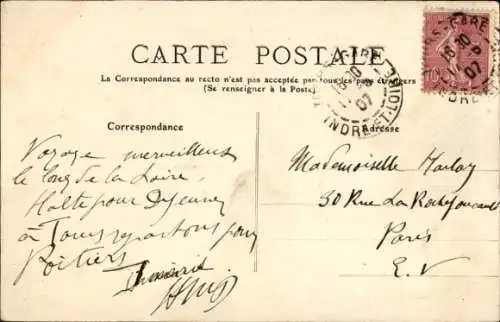 CARTE POSTALE
La Correspondance au recto n'est pas acceptée par tous les pays étrangers
(Se renseigner à la Poste)
TOURS-GARE
18 30
07
INDRE-ET-LOIRE
Correspondance
Adresse
Voyage merveilleux
le long de la Loire.
Halte pour Dejeuner
à Tours repartons pour
Poitiers
Mademoiselle Harlay
30 Rue La Rochefoucauld
Paris
E.V